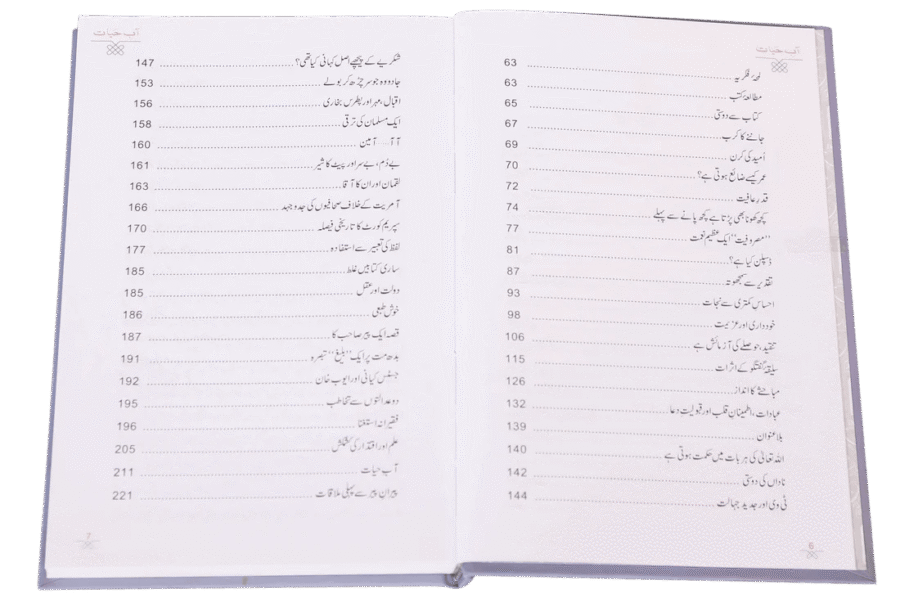 آبِ حیات
لمحۂ فکریہ 63
مطالعۂ کتب 63
کتاب سے دوستی 65
جاننے کا کرب 67
اُمید کی کرن 69
عمر کیسے ضائع ہوتی ہے؟ 70
قدرِ عافیت 72
کچھ کھونا بھی پڑتا ہے کچھ پانے سے پہلے 74
”مصروفیت“ ایک عظیم نعمت 77
ڈسپلن کیا ہے؟ 81
تقدیر سے سمجھوتہ 87
احساسِ کمتری سے نجات 93
خودداری اور عزیمت 98
تنقید، حوصلے کی آزمائش ہے 106
سلیقۂ گفتگو کے اثرات 115
مباحثے کا انداز 126
عبادات، اطمینانِ قلب اور قبولیتِ دعا 132
بلاعنوان 139
اللہ تعالیٰ کی ہر بات میں حکمت ہوتی ہے 140
ناداں کی دوستی 142
ٹی وی اور جدید جہالت 144
6
آبِ حیات
شکریے کے پیچھے اصل کہانی کیا تھی؟ 147
جادو وہ جو سر چڑھ کر بولے 153
اقبال، مہر اور پطرس بخاری 156
ایک مسلمان کی ترقی 158
آ آ... آمین 160
بے دُم، بے سر اور پیٹ کا شیر 161
لقمان اور ان کا آقا 163
آمریت کے خلاف صحافیوں کی جدوجہد 166
سپریم کورٹ کا تاریخی فیصلہ 170
لفظ کی تعبیر سے استفادہ 177
ساری کتابیں غلط 185
دولت اور عقل 185
خوش طبعی 186
قصہ ایک پیر صاحب کا 187
بدھ مت پر ایک ”بلیغ“ تبصرہ 191
جسٹس کیانی اور ایوب خان 192
دو عدالتوں سے تخاطب 195
فقیرانہ استغنا 196
علم اور اقتدار کی کشمکش 205
آب حیات 211
پیرانِ پیر سے پہلی ملاقات 221
7